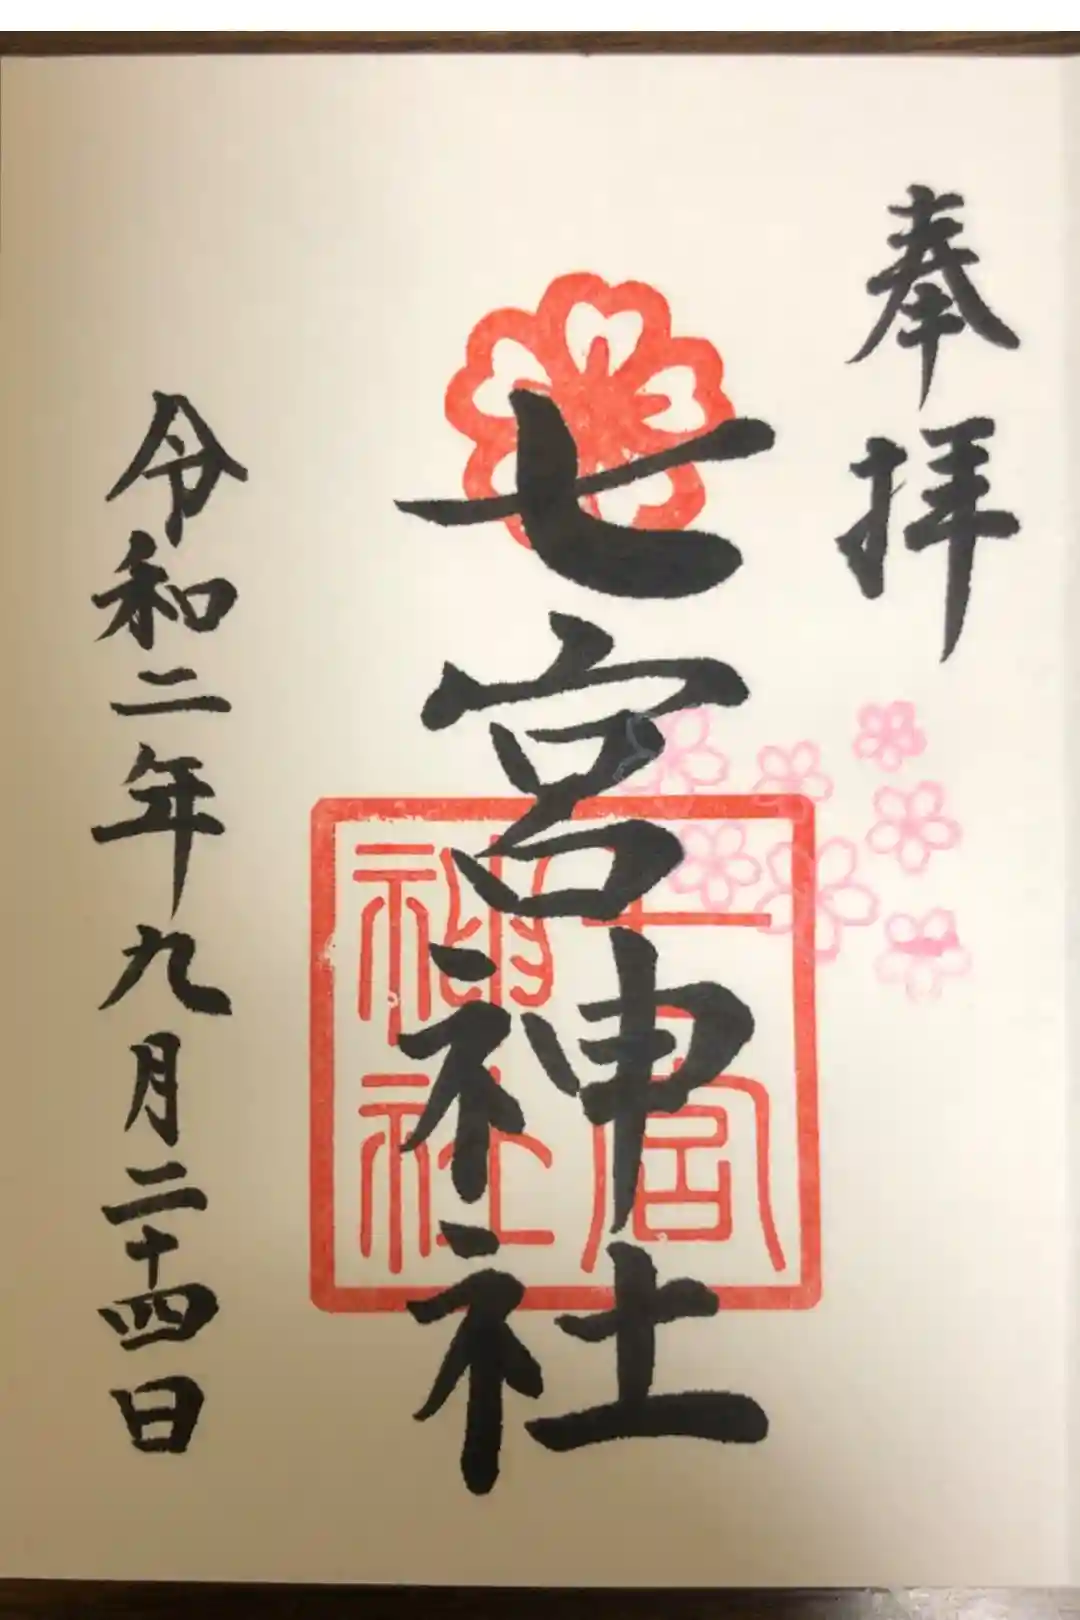 奉拝
七宮神社
七宮神社
令和二年九月二十四日